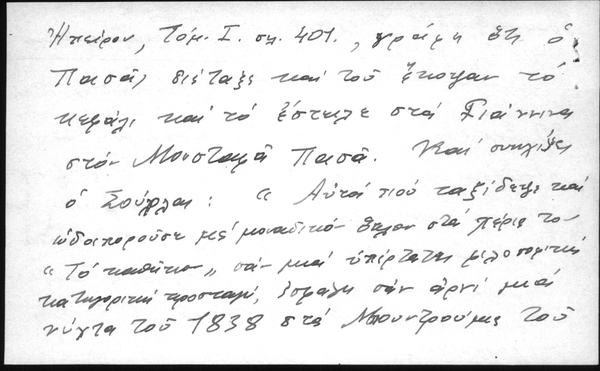 Ἠπείρου, τόμ. Ι. σελ. 401., γράφη ὅτι ὁ
Πασᾶς διέταξε καί τοῦ ἔκοψαν τό
κεφάλι καί τό ἔστειλε στά Γιάννινα
στόν Μουσταφᾶ Πασᾶ. Καί συνεχίζει
ὁ Σούρλας : " Αὐτός πού ταξίδεψε καί
ὡδοιπορούσε μέ μοναδικόν ὅπλον στά χέρια του
" Τό καθῆκον " σάν μιά ὑπέρτατη φιλοσοφική
κατηγορική προσταγή, ἐσφάγη σάν ἀρνί μιά
νύχτα τοῦ 1838 στά Μπουντρούμια τοῦ